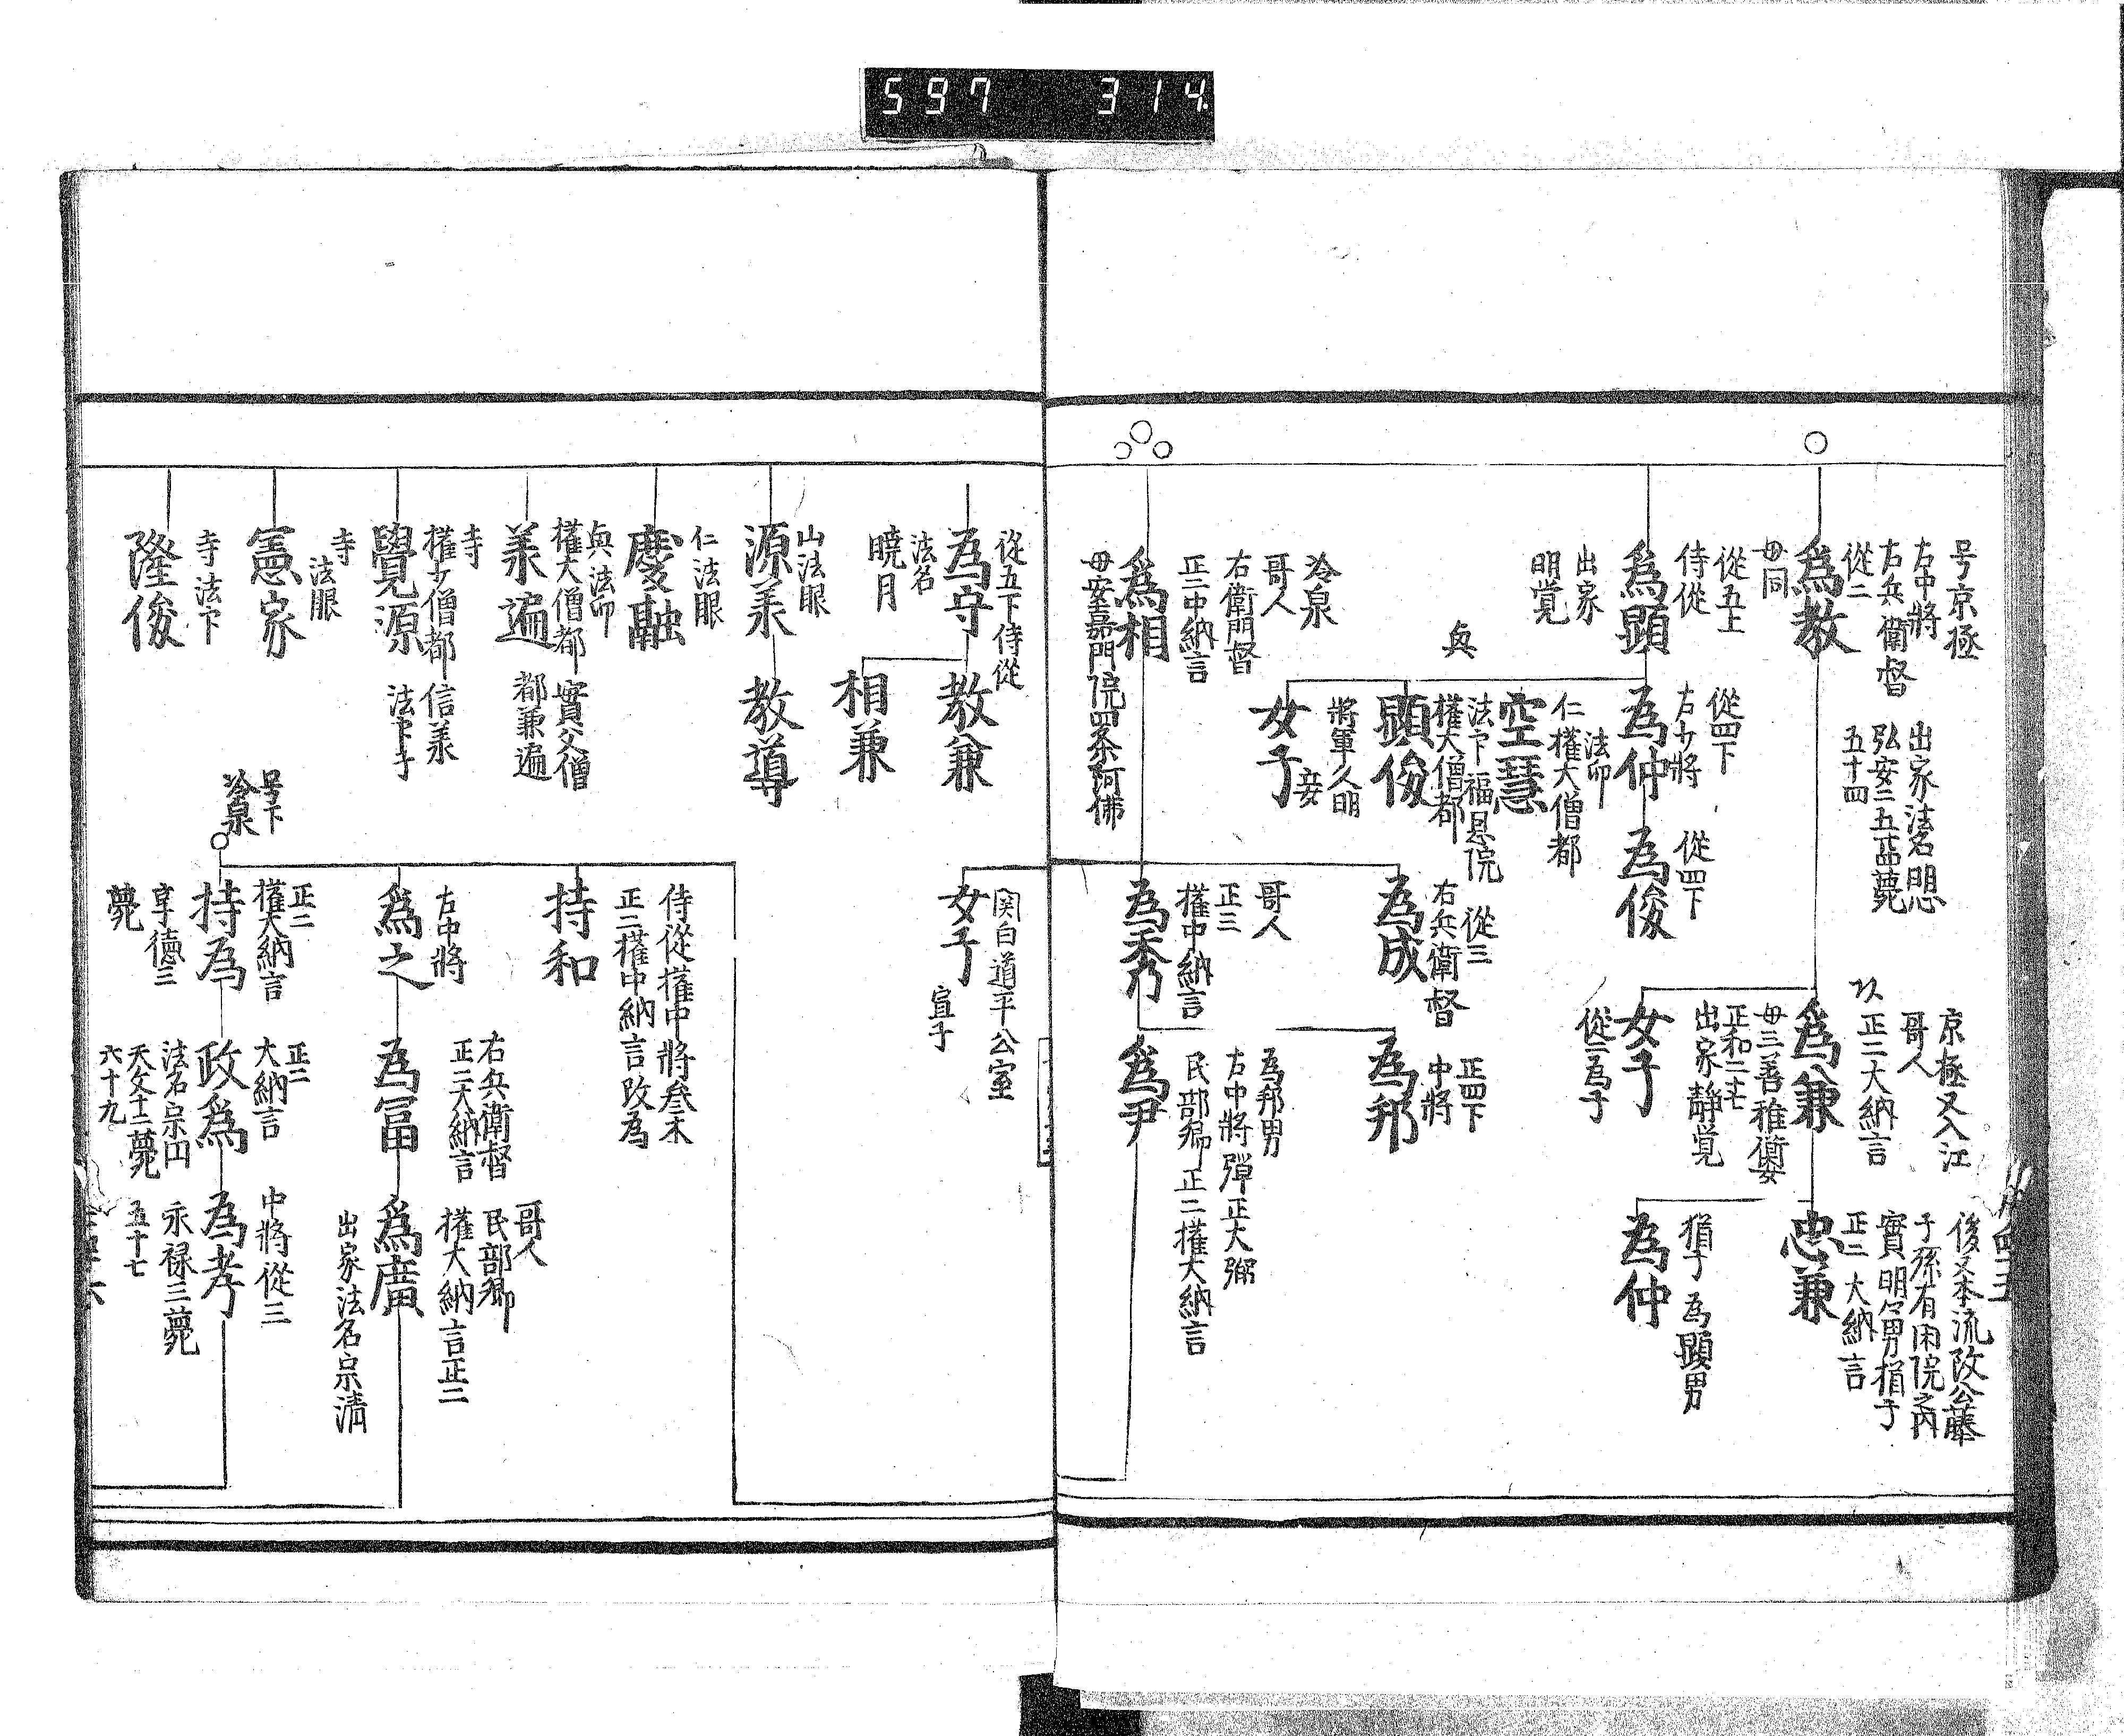 597 314
号京極
右中將
右兵衛督
從二
為教
母同
出家法名明心
弘安二五廿四薨
五十四
京極又入江
哥人
正二大納言
為兼
母三善雅衡女
正和二十七
出家靜覚
女子
從二為子
後又本流改公蔭
子孫有閑院之内
實明卿男猶子
正二大納言
忠兼
猶子為顕男
為仲
從五上
侍從
為顕
出家
明覚
從四下
右少將
為仲
從四下
為俊
法印
仁權大僧都
空慧
法下福恩院
權大僧都
顕俊
將軍久明
妾
女子
冷泉
哥人
右衛門督
正二中納言
為相
母安嘉門院四条阿佛
從三
右兵衛督
為成
哥人
正三
權中納言
為秀
正四下
中將
為邦
為邦男
右中將彈正大弼
民部卿正二權大納言
為尹
関白道平公室
女子
宣子
從五下侍從
為守
法名
暁月
教兼
相兼
山法眼
源承
教導
仁法眼
慶融
與法印
權大僧都
承遍
實父僧
都兼遍
寺
權少僧都
覺源
信承
法下子
寺
法眼
憲家
寺法下
隆俊
侍從權中將叁木
正二權中納言改為
持和
右中將
為之
右兵衛督
正二大納言
為冨
哥人
民部卿
權大納言正二
為廣
出家法名宗清
号下
冷泉
正二
權大納言
持為
享德三
薨
正二
大納言
政為
法名宗円
天文十二薨
六十九
中將從三
為孝
永禄三薨
五十七